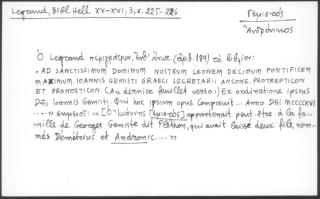 Legrand, Bibl. Hell. XV-XVI, 3, σ. 225-226
Γεμιστός
Ἀνδρόνικος
Ὁ Legrand περιγράφων, ἔνθ' ἀνωτ. (ἀρ. 189) τὸ βιβλίον:
«AD SANCTISSIMUM DOMINUM NOSTRUM LEONEM DECIMUM PONTIFICEM
MAXIMUM, IOANNIS GEMISTI GRAECI SECRETARII ANCONE. PROTREPTICON
ET PRONOSTICON. (Au dernier feuillet verso:) Ex ordinatione ipsius
Dñi Ioannis Gemisti. Qui hoc ipsum opus Composuit... Anno Dñi MCCCCXVI
....» σημειοῖ: «[Ὁ Ἰωάννης Γεμιστὸς] appartenait peut-être à la fa-
mille de Georges Gemiste dit Pléthon, qui avait laissé deux fils, nom-
més Démétrius et Andronic....»